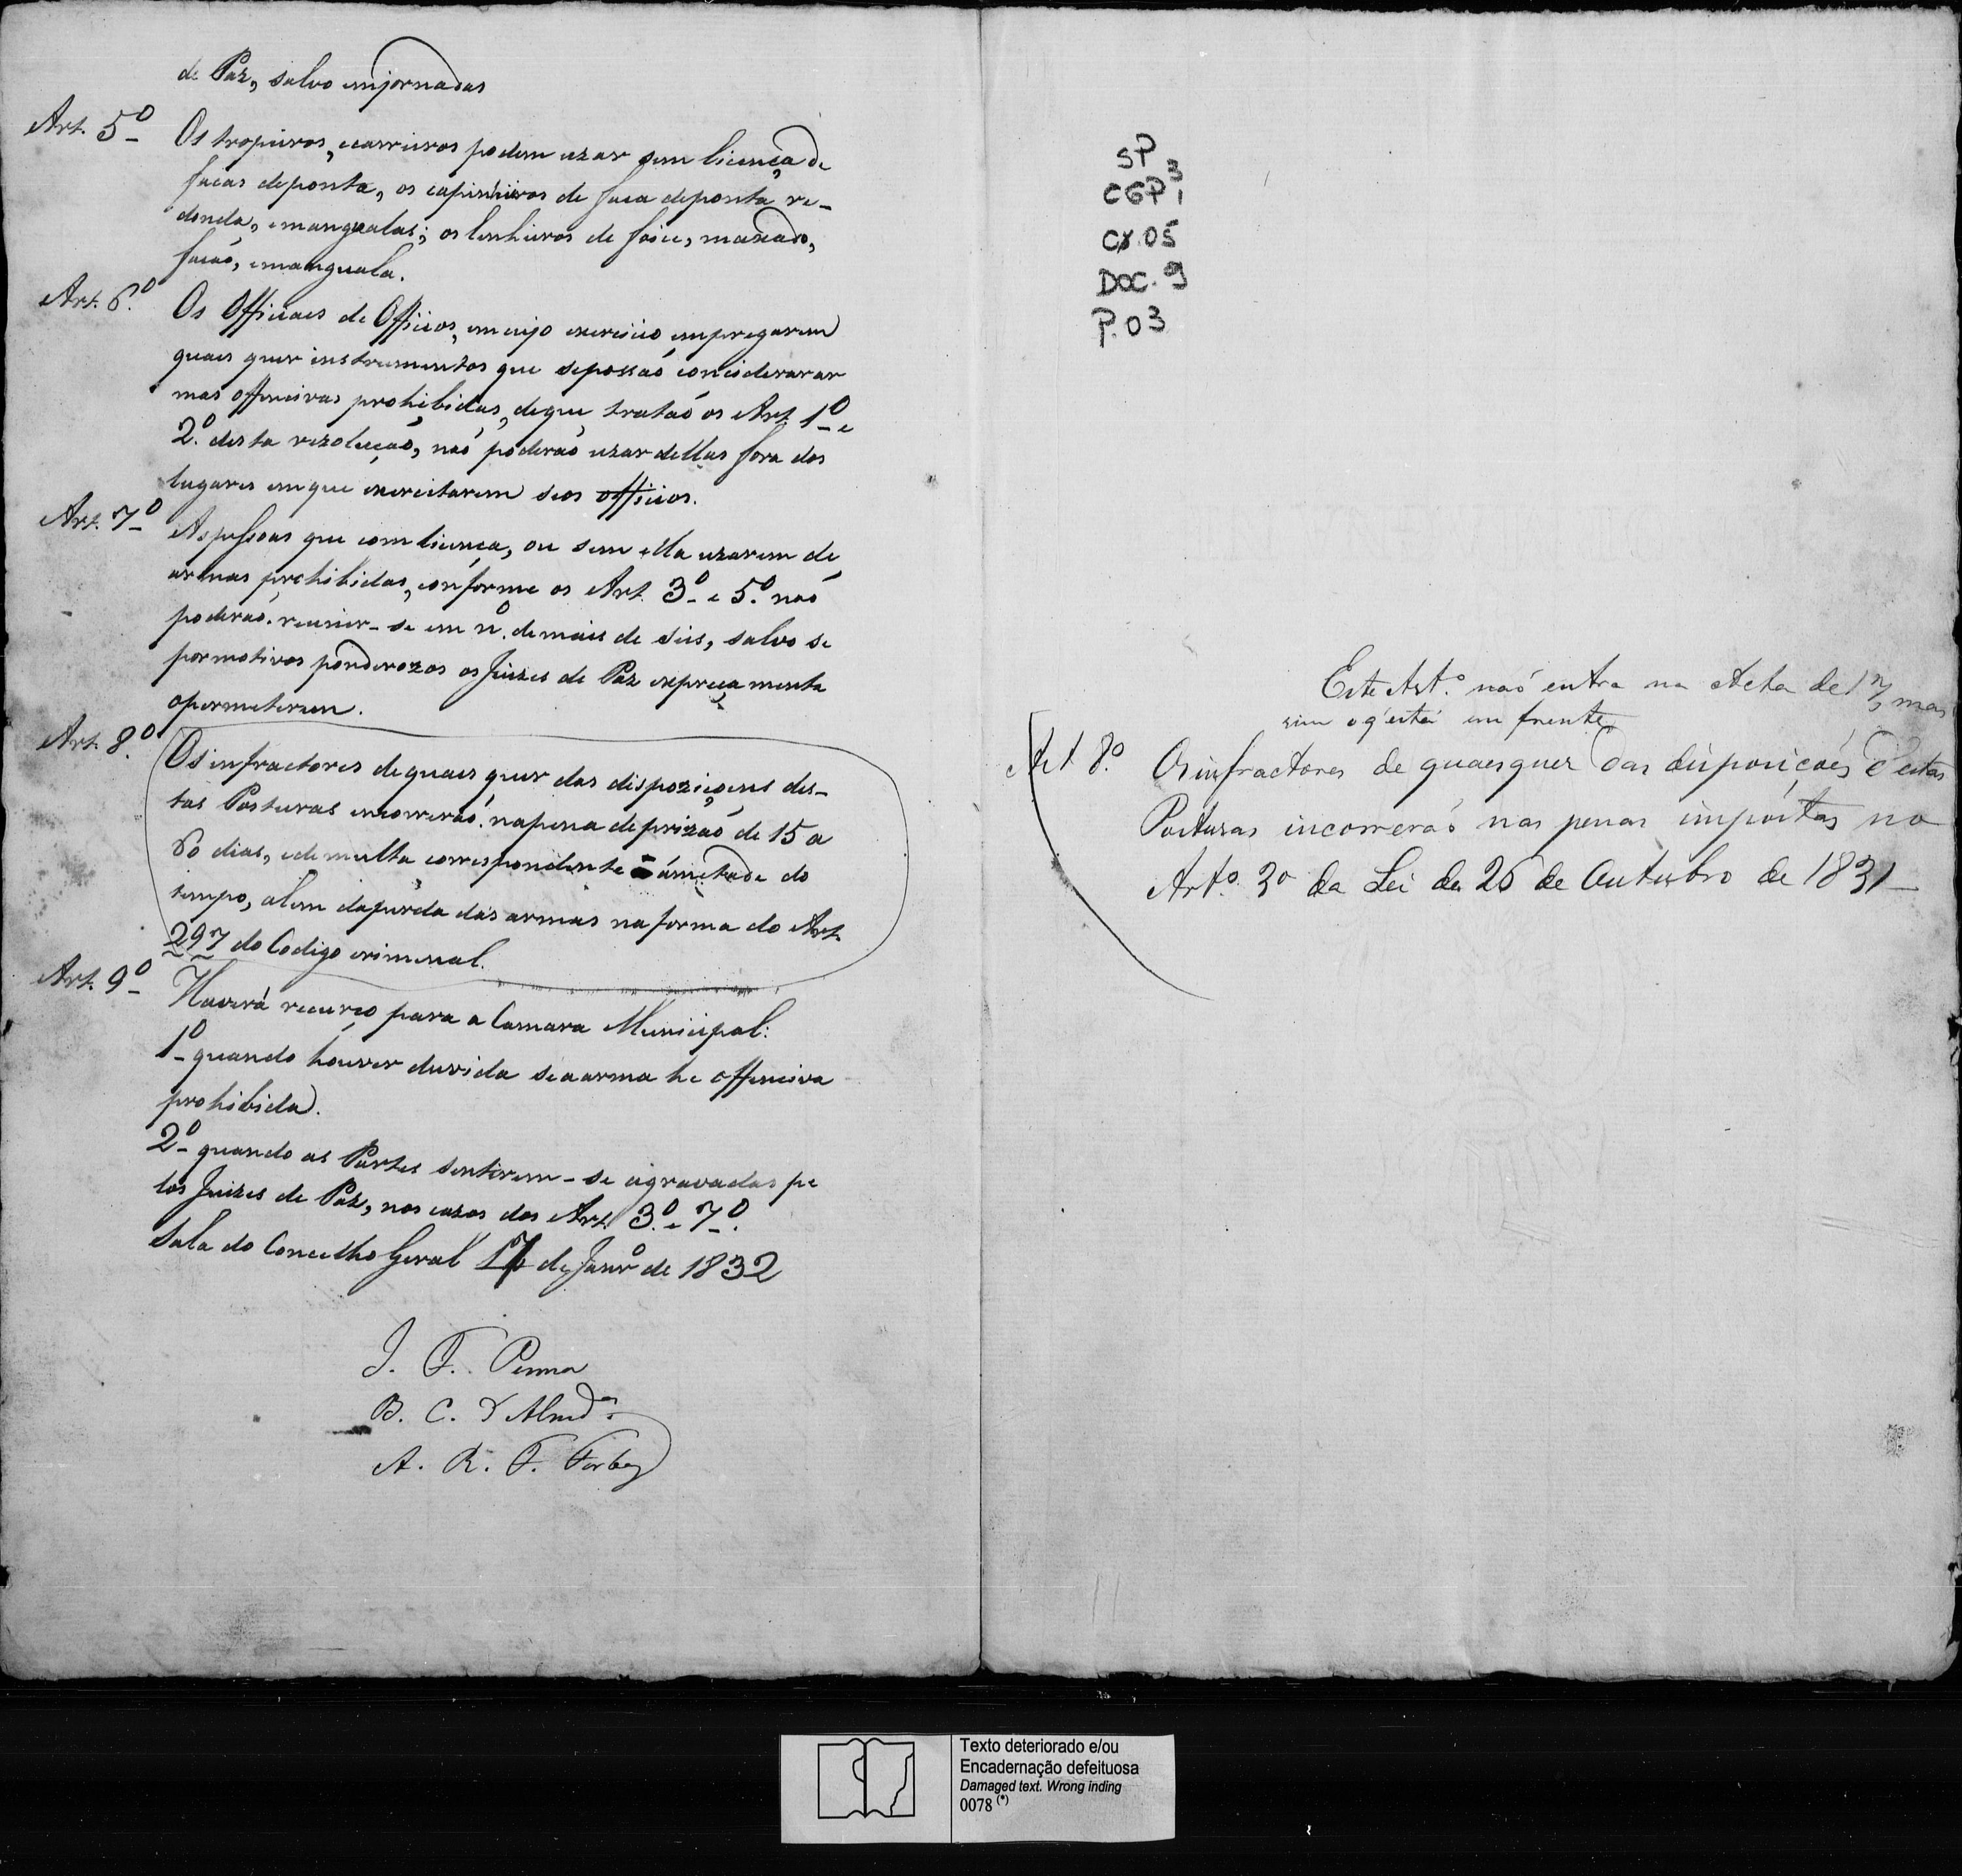 de Paz, salvo emjornadas
Art. 5º Os tropeiros, ecarreiros podem uzar sem licença de
facas deponta, os capinheiros de faca deponta re-
donda, emangualas; os lenheiros de foice, maxado,
facaõ, emanguala.
Art. 6.º Os Officiaes de Officios, emcujo exercicio empregarem
quaes quer instrumentos que sepossaõ conciderarar
mas offencivas prohibidas, deque trataõ os Art. 1º e
2.º desta rezoluçaõ, naõ poderaõ uzar dellas fora dos
lugares emque exercitarem seos officios.
Art. 7º Aspessoas que comlicença, ou sem ella uzarem de
armas prohibidas, conforme os Art. 3º e 5.º naõ
poderaõ reunir-se em nº. demais de seis, salvo se
pormotivos ponderozos os Juizes de Paz expreçamente
opermeterem.
Art. 8.º Os infractores dequaes quer das dispoziçoens des-
tas Posturas encorreraõ napena deprizaõ de 15 a
60 dias, edemulta correspondente ámetade do
tempo, alem daperda das armas na forma do Art.
297 do Codigo criminal.
Art. 9º Haverá recurço para a Camara Municipal:
1º quando houver duvida seaarma he offenciva
prohibida.
2º quando as Partes sentirem-se agravadas pe
los Juizes de Paz, nos cazos dos Art. 3.º e 7º.
Sala do Concelho Geral 17 de Janrº de 1832
J. F. Penna
B. C. d'Almdª
A. R. F. Forbes
SP
CGP3
1
CX.05
DOC. 9
P.03
Este Artº. naõ entra na Acta de 17, mas
sim o q' está em frente
Art 8º. Os infractores de quaesquer das disposiçoẽs d'estas
Posturas incorreraõ nas penas impostas no
Artº. 3º da Lei de 26 de Outubro de 1831
Texto deteriorado e/ou
Encadernação defeituosa
Damaged text. Wrong inding
0078 (*)